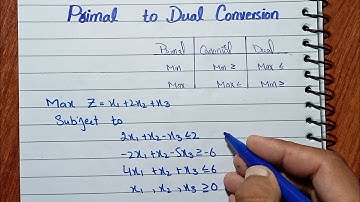 Primal to Dual Conversion
Primal Canonical Dual
Min Min ≥ Max ≤
Max Max ≤ Min ≥
Max Z = x1 + 2x2 + x3
Subject to
2x1 + x2 - x3 ≤ 2
-2x1 + x2 - 5x3 ≥ -6
4x1 + x2 + x3 ≤ 6
x1, x2, x3 ≥ 0